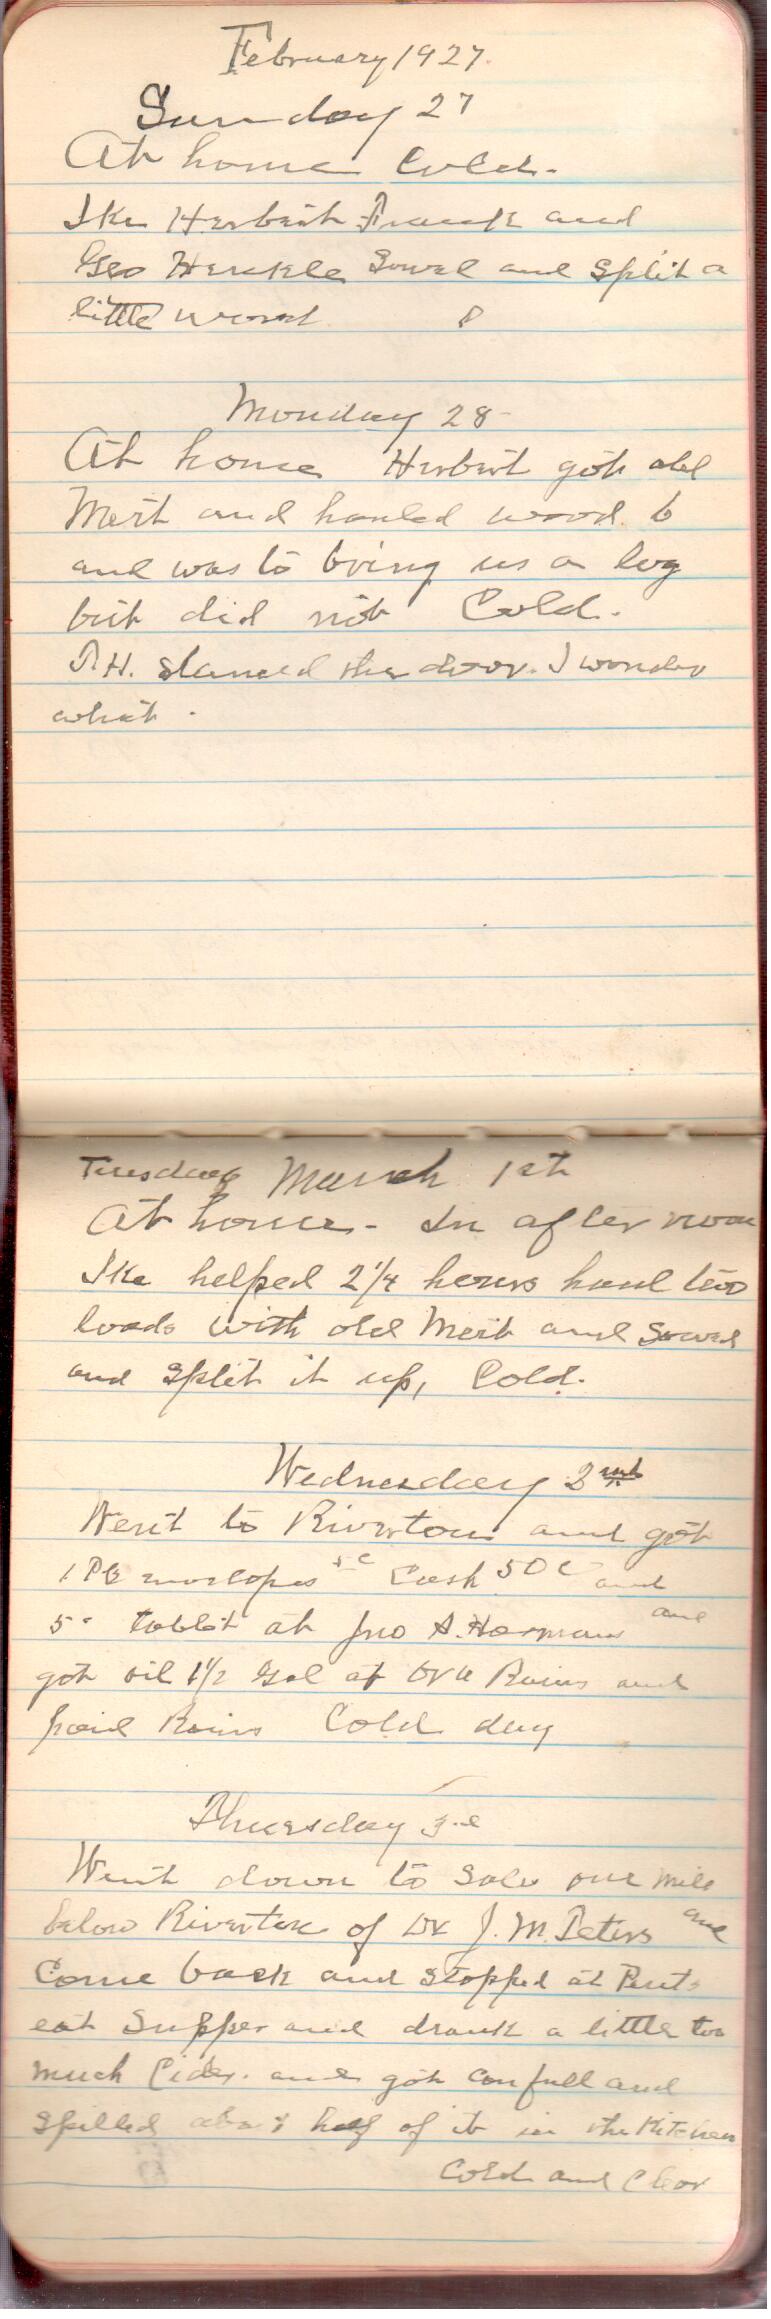 February 1927.
Sunday 27
At home Cold.
Ike Herbert Frank and
Geo Henkle Sowed and Split a
little wood
Monday 28
At home Herbert got old
Mert and hauled wood
and was to bring us a log
but did not Cold.
H. slamed the door. I wonder
what.
Tuesday March 1st
At home. In after noon
Ike helped 2 1/4 hours haul two
loads with old Mert and Sowed
and Split it up, Cold.
Wednesday 2nd
Went to Riverton and got
1 PG envelopes 5c Cash 50c and
5c tablet at Jno S. Harmans and
got oil 1 1/2 Gal at Rains and
paid Rains Cold day
Thursday 3d
Went down to Sale one mile
below Riverton of Dr J. M. Peters and
Come back and Stopped at
eat Supper and drank a little too
much Cider. and got can full and
Spilled about half of it in the Kitchen
Cold and Clear